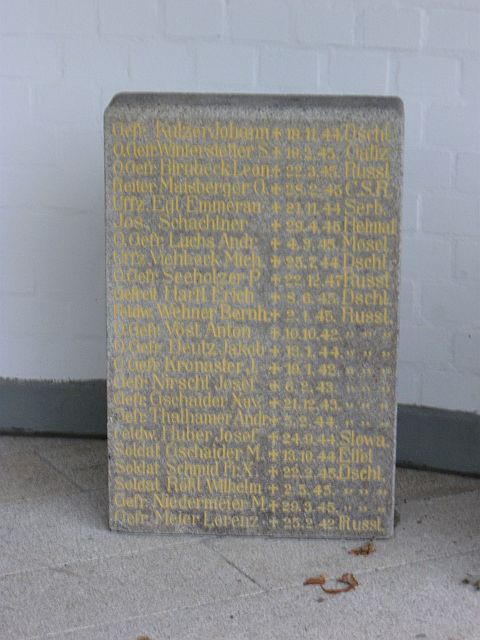 Gefr. Kutzer Johann + 18.11.44. Dschl.
O.Gefr. Winterstetter S. + 19.2.45. Gallz.
O.Gefr. Birnbeck Leonh. + 22.3.45. Russl.
Reiter Maisberger O. + 28.2.45. C.S.R.
Uffz. Egl Emmeran + 21.11.44 Serb.
Jos. Schachtner + 29.4.46 Heimat
O.Gefr. Luchs Andr. + 4.3.45. Mosel
Uffz. Viehbeck Mich. + 25.7.44 Dschl.
O.Gefr. Seeholzer P. + 27.12.47 Russl.
Gefreit. Hartl Erich + 8.6.45. Dschl.
Feldw. Wehner Bernh. + 2.1.45. Russl.
O.Gefr. Vöst Anton + 10.10.42 " " "
O.Gefr. Deutz Jakob + 13.1.44 " " "
O.Gefr. Kronaster J. + 10.1.42 " " "
Gefr. Nirschl Josef + 6.2.43. " " "
Gefr. Gschaider Xav. + 21.12.43. " " "
Gefr. Thalhamer Andr. + 2.44. " " "
Feldw. Huber Josef + 24.9.44 Slowa.
Soldat Gschaider M. + 13.10.44 Elfbl
Soldat Schmid Fr.X. + 22.2.45 Dschl.
Soldat Rußl Wilhelm + 2.5.45. " " "
Gefr. Niedermeier M. + 29.3.45. " " "
Gefr. Meier Lorenz + 25.2.42 Russl.